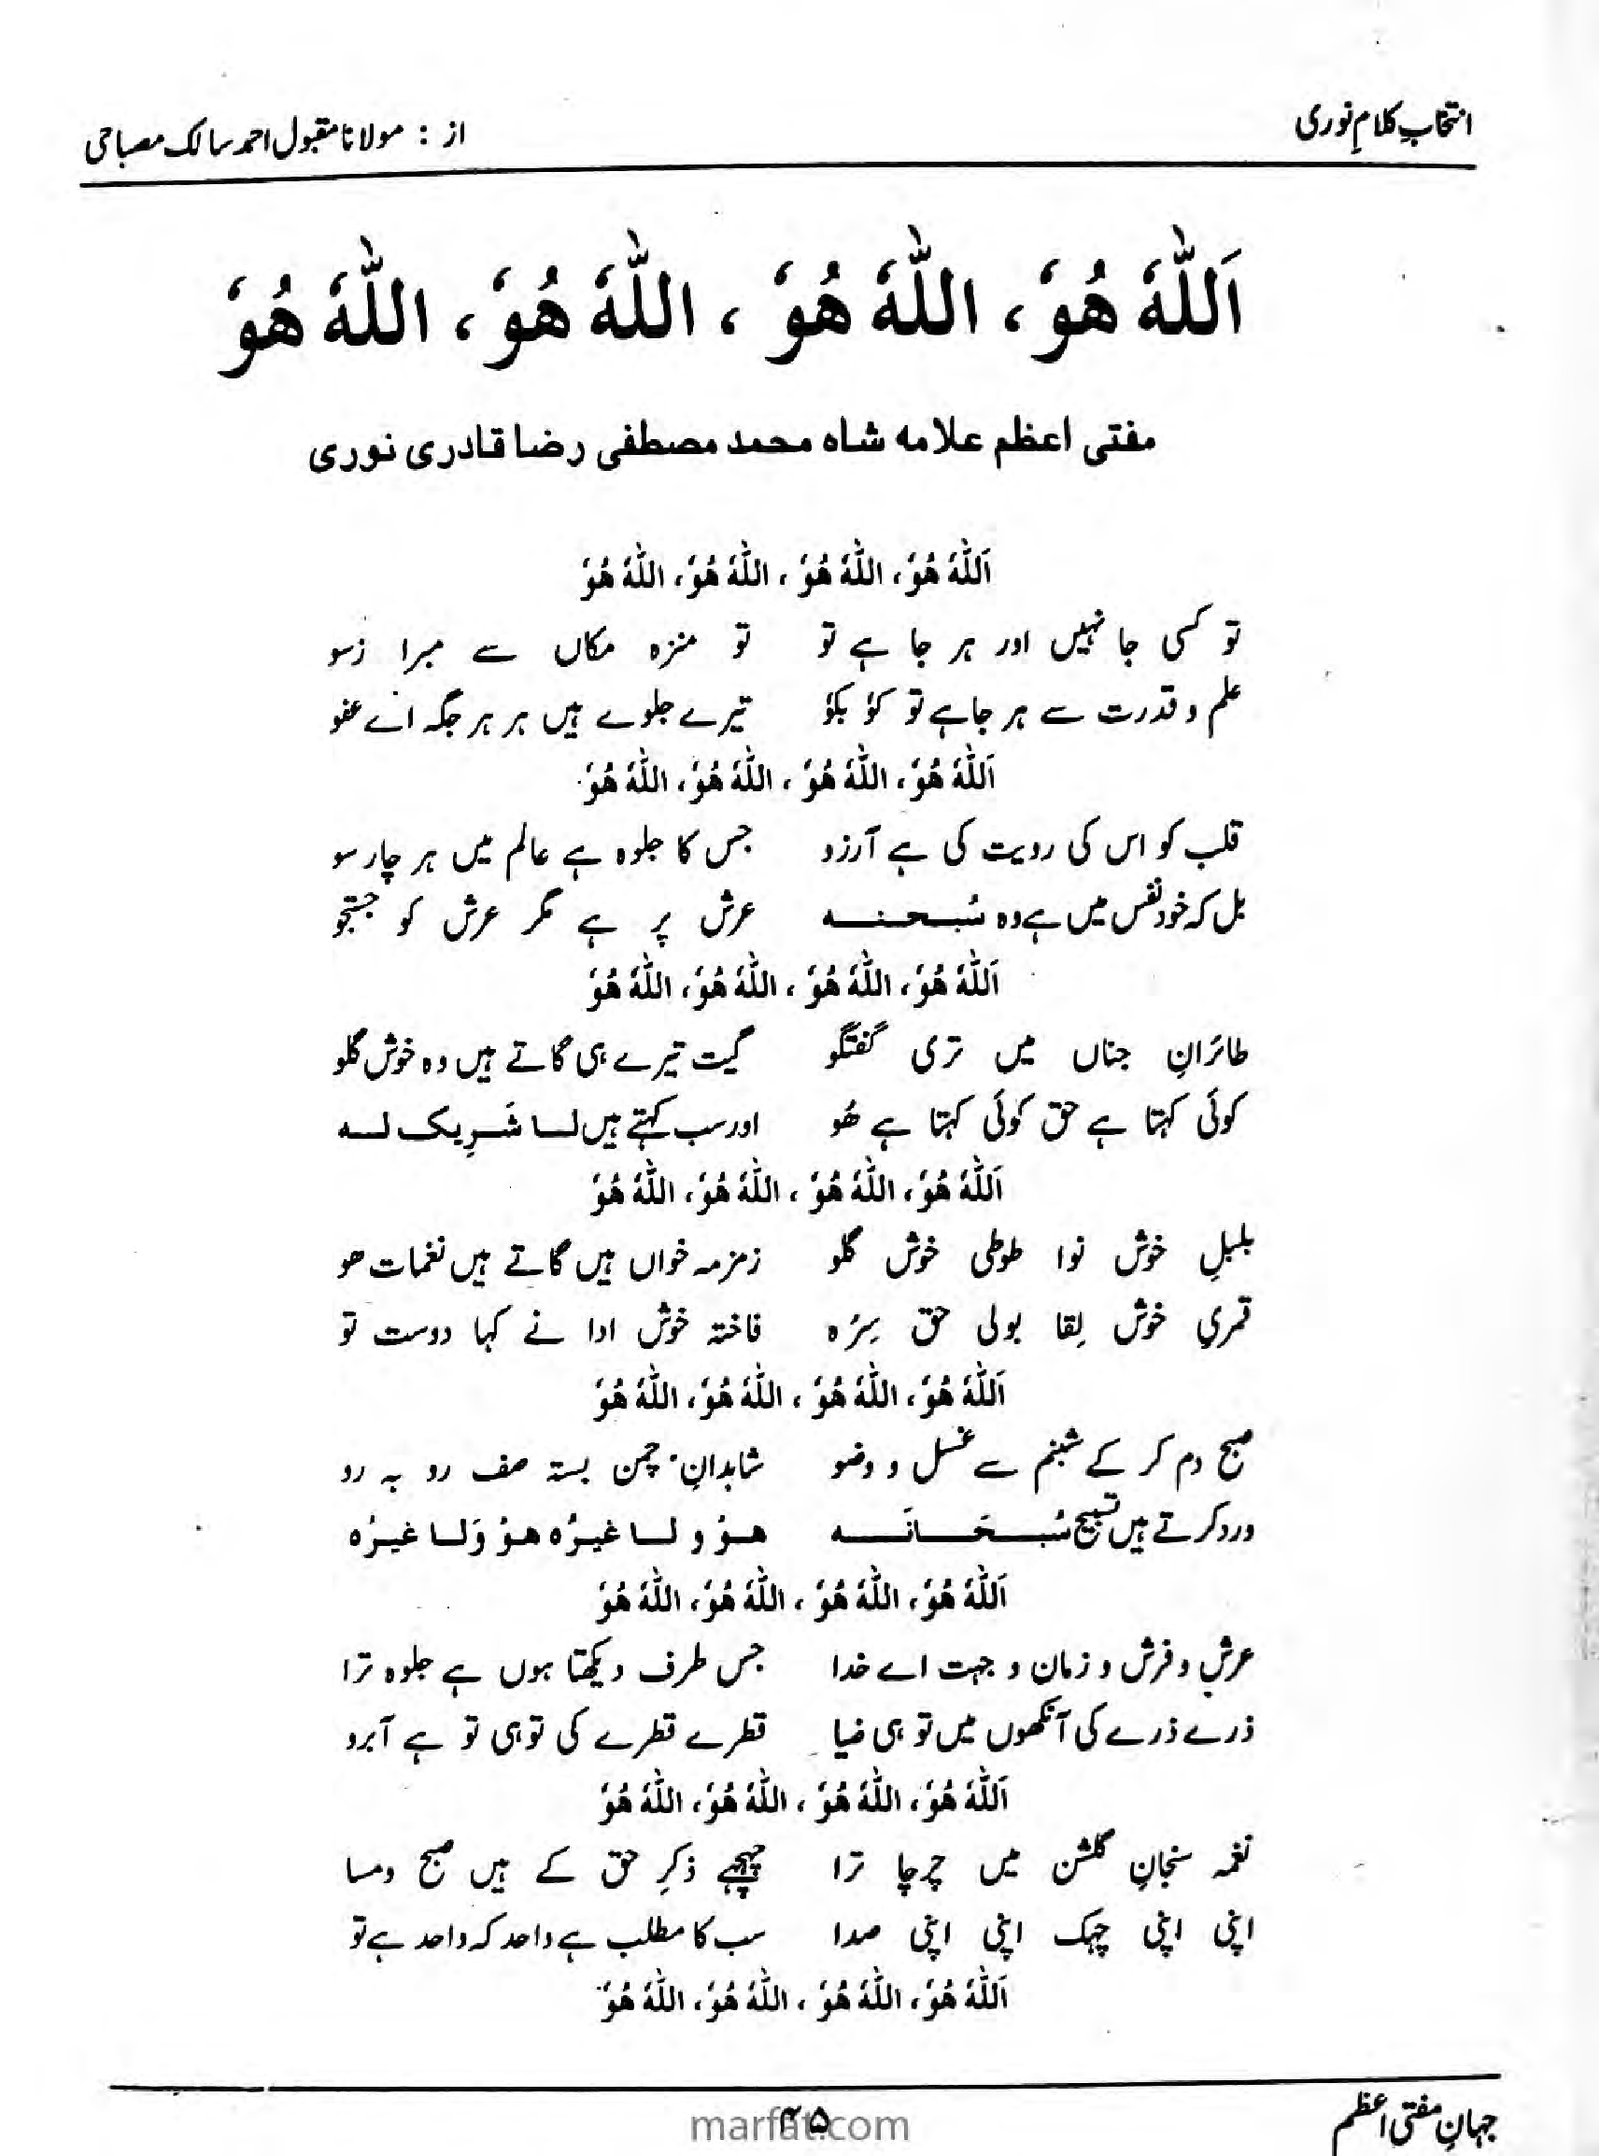 انتخابِ کلامِ نوری
از : مولانا مقبول احمد سالک مصباحی
اَللّٰہُ ھُوْ، اللّٰہُ ھُوْ ، اللّٰہُ ھُوْ، اللّٰہُ ھُوْ
مفتی اعظم علامہ شاہ محمد مصطفی رضا قادری نوری
اَللّٰہُ ھُوْ، اللّٰہُ ھُوْ ، اللّٰہُ ھُوْ، اللّٰہُ ھُوْ
تو کسی جا نہیں اور ہر جا ہے تو تو منزہ مکاں سے مبرا زسو
علم و قدرت سے ہر جا ہے تو کوٗ بکوٗ تیرے جلوے ہیں ہر ہر جگہ اے عفو
اَللّٰہُ ھُوْ، اللّٰہُ ھُوْ ، اللّٰہُ ھُوْ، اللّٰہُ ھُوْ
قلب کو اس کی رویت کی ہے آرزو جس کا جلوہ ہے عالم میں ہر چار سو
بل کہ خود نفس میں ہے وہ سُبحنہ عرش پر ہے مگر عرش کو جستجو
اَللّٰہُ ھُوْ، اللّٰہُ ھُوْ ، اللّٰہُ ھُوْ، اللّٰہُ ھُوْ
طائرانِ جناں میں تری گفتگو گیت تیرے ہی گاتے ہیں وہ خوش گلو
کوئی کہتا ہے حق کوئی کہتا ہے ھُو اور سب کہتے ہیں لا شَرِیک لہ
اَللّٰہُ ھُوْ، اللّٰہُ ھُوْ ، اللّٰہُ ھُوْ، اللّٰہُ ھُوْ
بلبلِ خوش نوا طوطی خوش گلو زمزمہ خواں ہیں گاتے ہیں نغمات ھو
قمریِ خوش لِقا بولی حق سِرُّہ فاختہ خوش ادا نے کہا دوست تو
اَللّٰہُ ھُوْ، اللّٰہُ ھُوْ ، اللّٰہُ ھُوْ، اللّٰہُ ھُوْ
صبح دم کر کے شبنم سے غسل و وضو شاہدانِ چمن بستہ صف رو بہ رو
ورد کرتے ہیں تسبیح سُبحَانَہ ھوُ و لا غیرُہ ھوُ وَلا غیرُہ
اَللّٰہُ ھُوْ، اللّٰہُ ھُوْ ، اللّٰہُ ھُوْ، اللّٰہُ ھُوْ
عرش و فرش و زمان و جہت اے خدا جس طرف دیکھتا ہوں ہے جلوہ ترا
ذرے ذرے کی آنکھوں میں تو ہی ضیا قطرے قطرے کی تو ہی تو ہے آبرو
اَللّٰہُ ھُوْ، اللّٰہُ ھُوْ ، اللّٰہُ ھُوْ، اللّٰہُ ھُوْ
نغمہ سنجانِ گلشن میں چرچا ترا چہچہے ذکرِ حق کے ہیں صبح ومسا
اپنی اپنی چہک اپنی اپنی صدا سب کا مطلب ہے واحد کہ واحد ہے تو
اَللّٰہُ ھُوْ، اللّٰہُ ھُوْ ، اللّٰہُ ھُوْ، اللّٰہُ ھُوْ
جہانِ مفتی اعظم
marfat.com